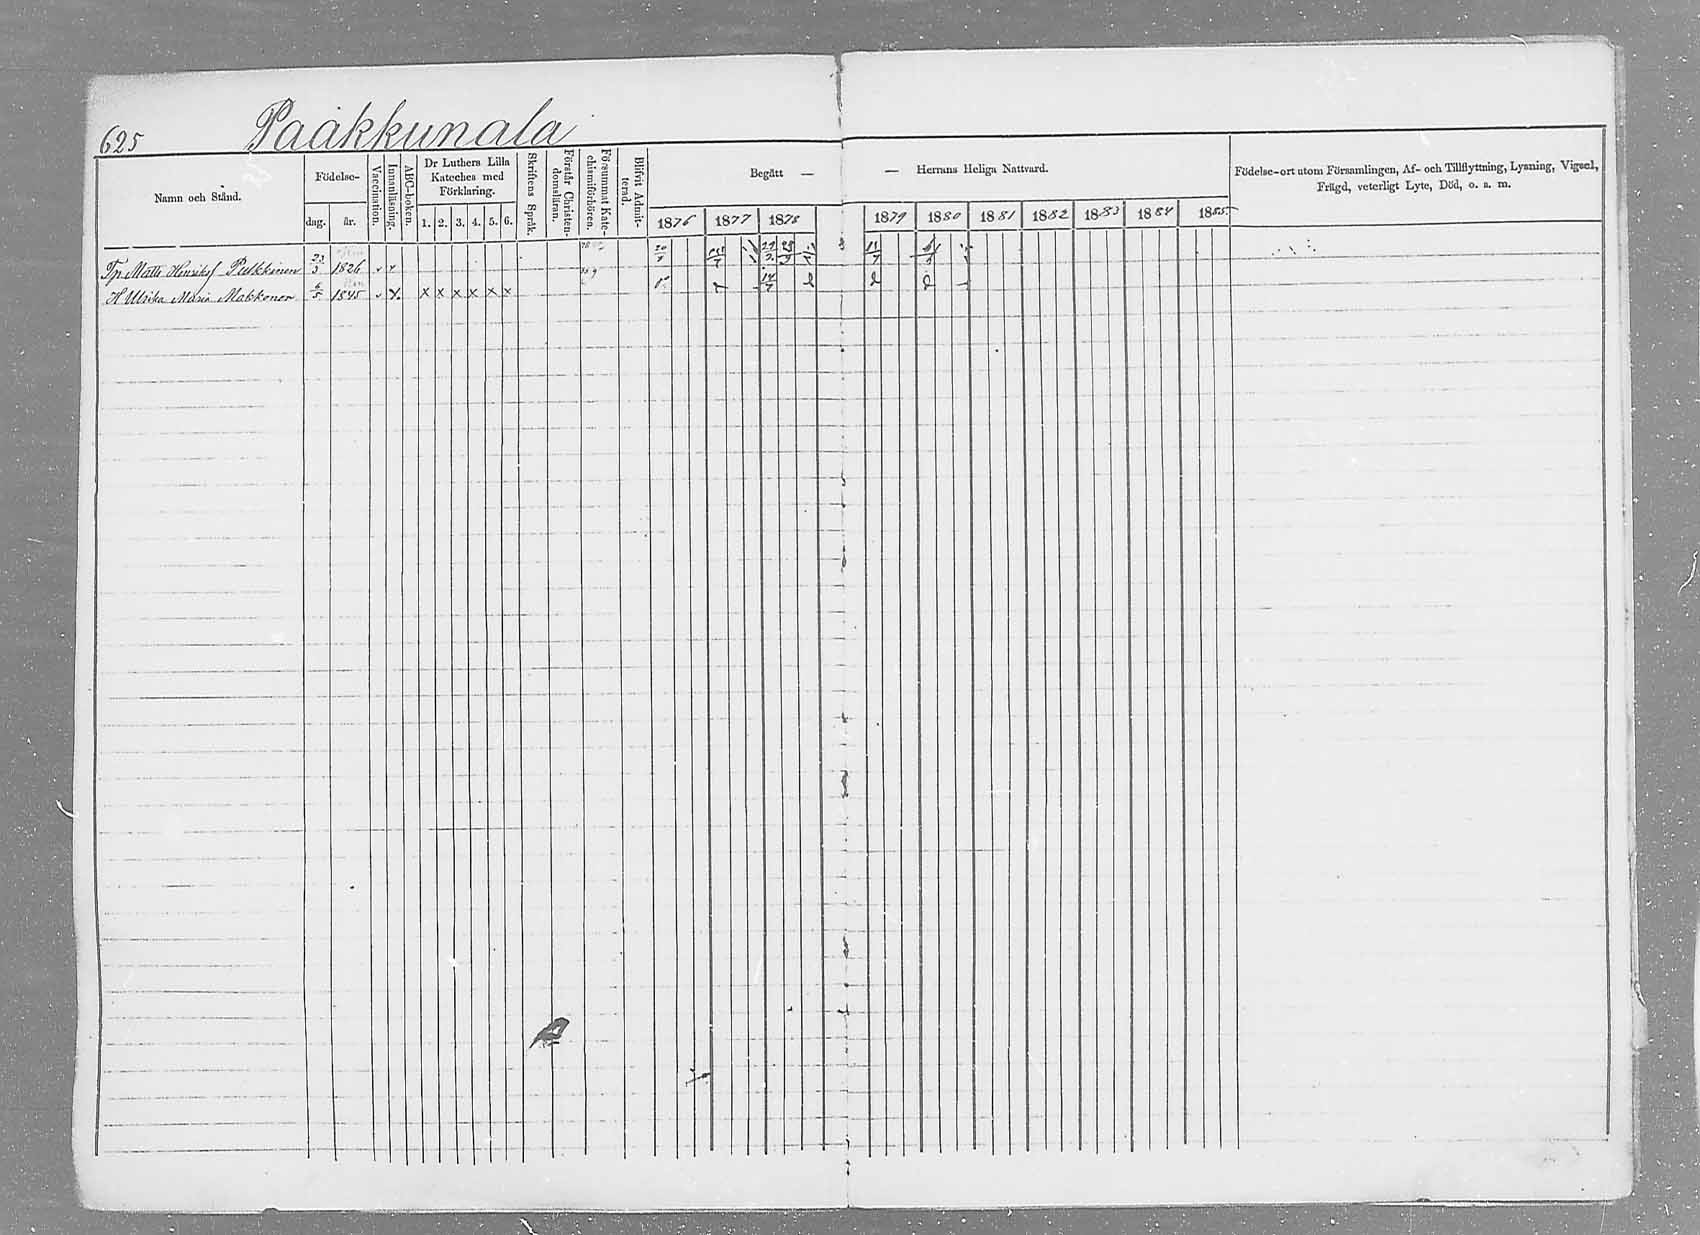 625 Paakkunala
Namn och Stånd.
Födelse-
dag. år.
Vaccination.
Innanläsning.
ABC-boken.
Dr Luthers Lilla
Kateches med
Förklaring.
1. 2. 3. 4. 5. 6.
Skriftens Språk.
Förstår Christen-
domsläran.
Försummat Kate-
chismiförhören.
Blifvit Admit-
terad.
Begått — — Herrans Heliga Nattvard.
1876 1877 1878 1879 1880 1881 1882 1883 1884 1885
Födelse-ort utom Församlingen, Af- och Tillflyttning, Lysning, Vigsel,
Frägd, veterligt Lyte, Död, o. s. m.
Tp. Matts Henriksf Pulkkinen 23/3 1826 v v
H Ulrika Maria Makkonen 6/5 1845 v x x x x x x x